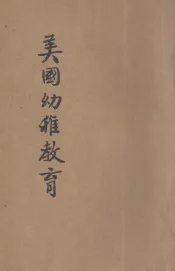 美國幼稚教育